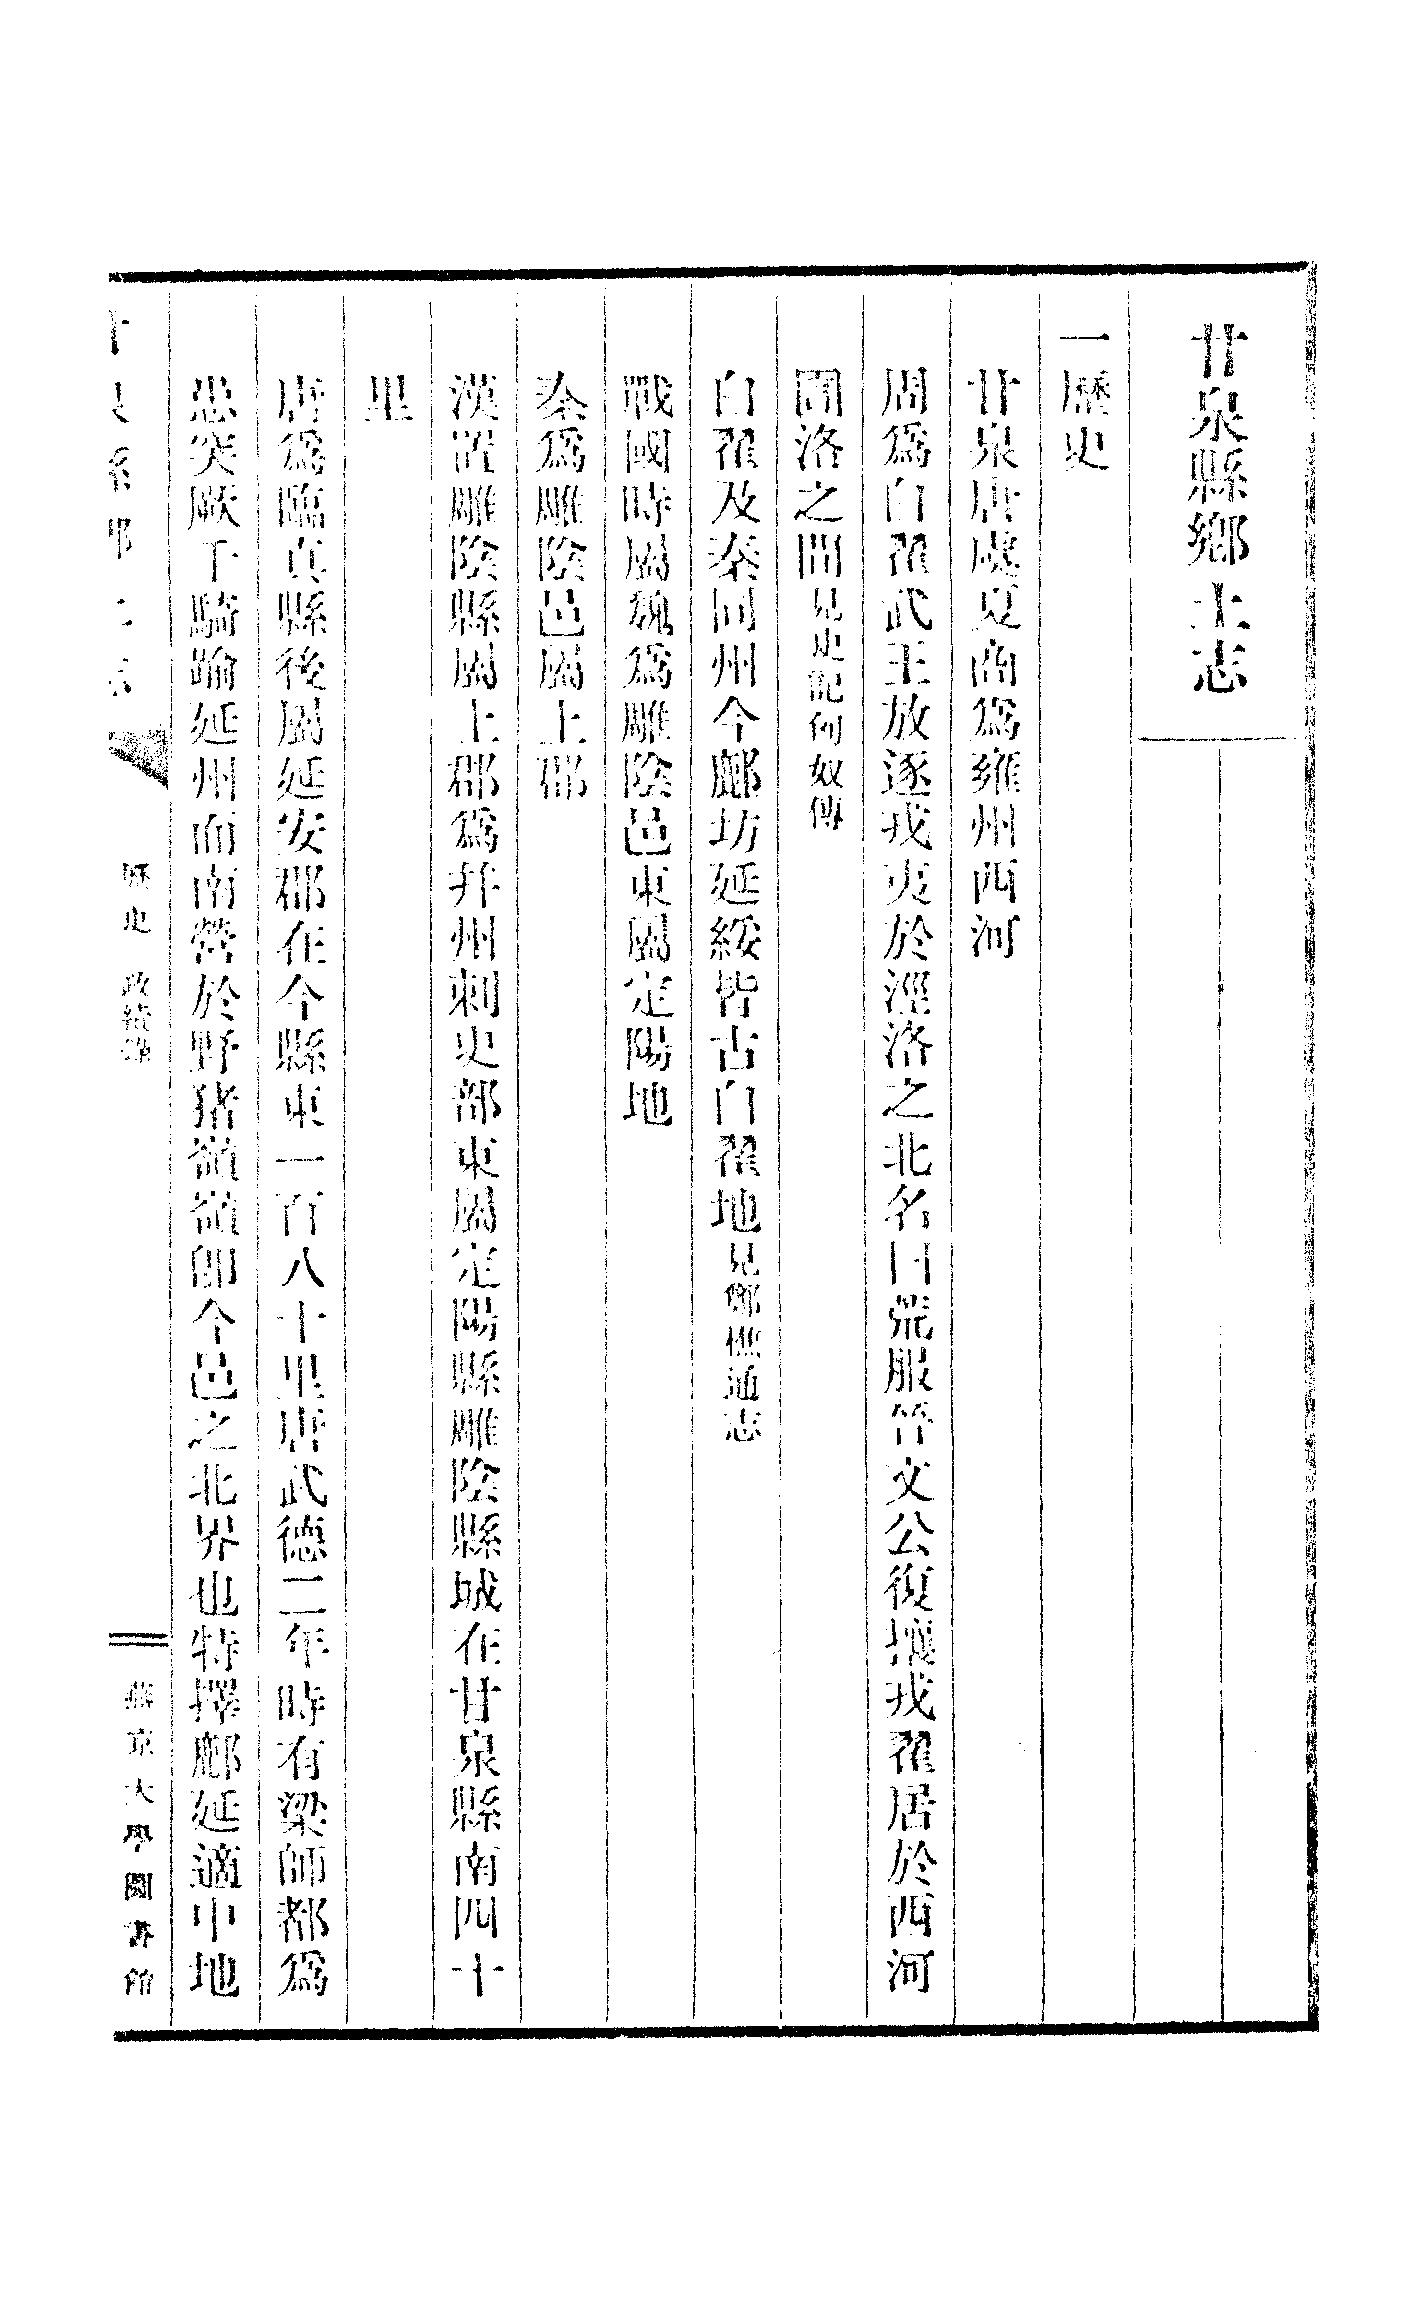 甘泉縣鄉土志
一歷史
甘泉唐虞夏商爲雍州西河
周爲白翟武王放逐戎夷於涇洛之北名曰荒服晉文公復壤戎翟居於西河
圁洛之間見史記匈奴傳
白翟及秦同州今鄜坊延綏皆古白翟地見鄭樵通志
戰國時屬魏爲雕陰邑東屬定陽地
秦爲雕陰邑屬上郡
漢置雕陰縣屬上郡爲幷州刺史部東屬定陽縣雕陰縣城在甘泉縣南四十
里
唐爲臨真縣後屬延安郡在今縣東一百八十里唐武德二年時有梁師都爲
患突厥千騎踰延州而南營於野猪嶺嶺卽今邑之北界也特擇鄜延適中地
歷史 政績錄
燕京大學圖書館